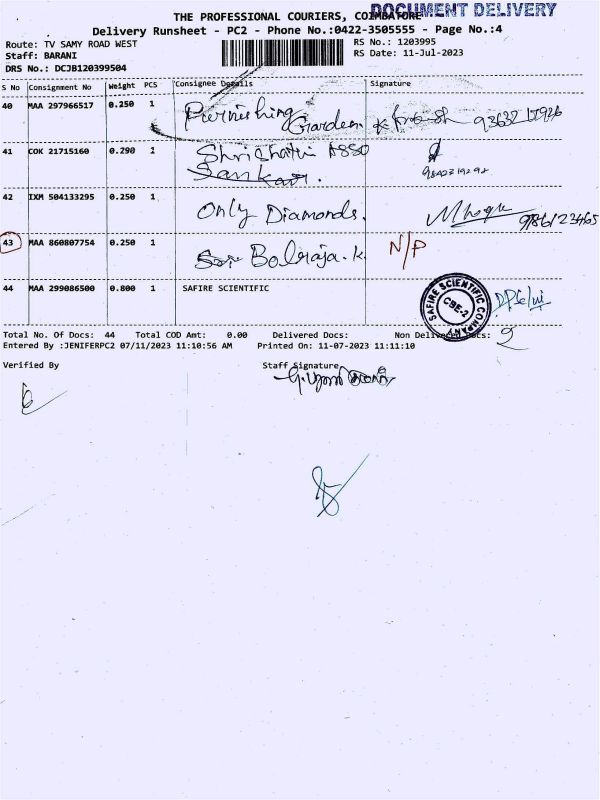 THE PROFESSIONAL COURIERS, COIMBATORE
DOCUMENT DELIVERY
Delivery Runsheet - PC2 - Phone No.:0422-3505555 - Page No.:4
Route: TV SAMY ROAD WEST
RS No.: 1203995
Staff: BARANI
RS Date: 11-Jul-2023
DRS No.: DCJB120399504
S No Consignment No Weight PCS Consignee Details Signature
40 MAA 297966517 0.250 1 Furnishing Garden
41 COK 21715160 0.290 1 Sankari.
42 IXM 504133295 0.250 1 Only Diamonds.
43 MAA 860807754 0.250 1 Balraja.k. N/P
44 MAA 299086500 0.800 1 SAFIRE SCIENTIFIC
SAFIRE SCIENTIFIC COMPANY
CBE-2
Total No. Of Docs: 44 Total COD Amt: 0.00 Delivered Docs: Non Delivered Docs:
Entered By :JENIFERPC2 07/11/2023 11:10:56 AM Printed On: 11-07-2023 11:11:10
Verified By Staff Signature